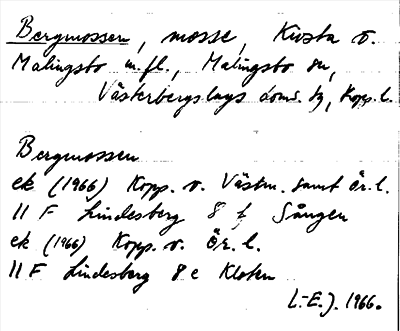 Bergmossen, mosse, Krsta o.
Malingsbo m.fl., Malingsbo sn,
Västerbergslags doms. tg, Kopp. l.
Bergmossen
ek (1966) Kopp. o. Västm. samt Ör. l.
11 F Lindesberg 8 f Sången
ek (1966) Kopp. o. Ör. l.
11 F Lindesberg 8 e Kloten
L-E. J. 1966.